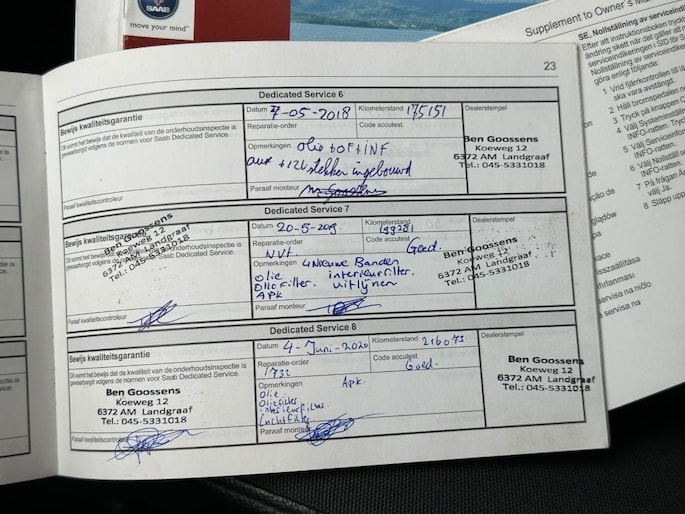 SAAB
move your mind™
Supplement to Owner's Man
23
SE, Nollställning av serviceindi
Efter att instruktionsboken tryckt
ändring skett när det gäller att n
serviceindikeringen i SID för S
Nollställning av serviceindike
göra enligt följande:
1 Vrid fjärrkontrollen till lä
ska vara avstängd.
2 Håll bromspedalen ne
3 Tryck på knappen C
4 Välj Systeminställn
INFO-ratten. Tryc
5 Välj Serviceinfor
INFO-ratten.
6 Välj Nollställ se
INFO-ratten.
7 På frågan Är
välj Ja.
8 Släpp upp
Dedicated Service 6
Bewijs kwaliteitsgarantie
Dit vormt het bewijs dat de kwaliteit van de onderhoudsinspectie is
gewaarborgd volgens de normen voor Saab Dedicated Service.
Paraaf kwaliteitscontroleur
Datum 7-05-2018
Kilometerstand 175151
Reparatie-order
Code accutest
Opmerkingen olie
aux +12V stekker ingebouwd
Paraaf monteur
Dealerstempel
Ben Goossens
Koeweg 12
6372 AM Landgraaf
Tel.: 045-5331018
Dedicated Service 7
Bewijs kwaliteitsgarantie
Dit vormt het bewijs dat de kwaliteit van de onderhoudsinspectie is
gewaarborgd volgens de normen voor Saab Dedicated Service.
Ben Goossens
Koeweg 12
6372 AM Landgraaf
Tel.: 045-5331018
Paraaf kwaliteitscontroleur
Datum
Kilometerstand
Reparatie-order
Code accutest
Goed.
Opmerkingen 4 Nieuwe Banden
Olie interieurfilter.
Oliefilter. uitlijnen
APK
Paraaf monteur
Dealerstempel
Ben Goossens
Koeweg 12
6372 AM Landgraaf
Tel.: 045-5331018
Dedicated Service 8
Bewijs kwaliteitsgarantie
Dit vormt het bewijs dat de kwaliteit van de onderhoudsinspectie is
gewaarborgd volgens de normen voor Saab Dedicated Service.
Ben Goossens
Koeweg 12
6372 AM Landgraaf
Tel.: 045-5331018
Paraaf kwaliteitscontroleur
Datum 4-Juni-2020
Kilometerstand 216073
Reparatie-order
1732
Code accutest
Goed.
Opmerkingen Apk.
Olie.
Oliefilter
interieurfilter
Luchtfilter
Paraaf monteur
Dealerstempel
Ben Goossens
Koeweg 12
6372 AM Landgraaf
Tel.: 045-5331018